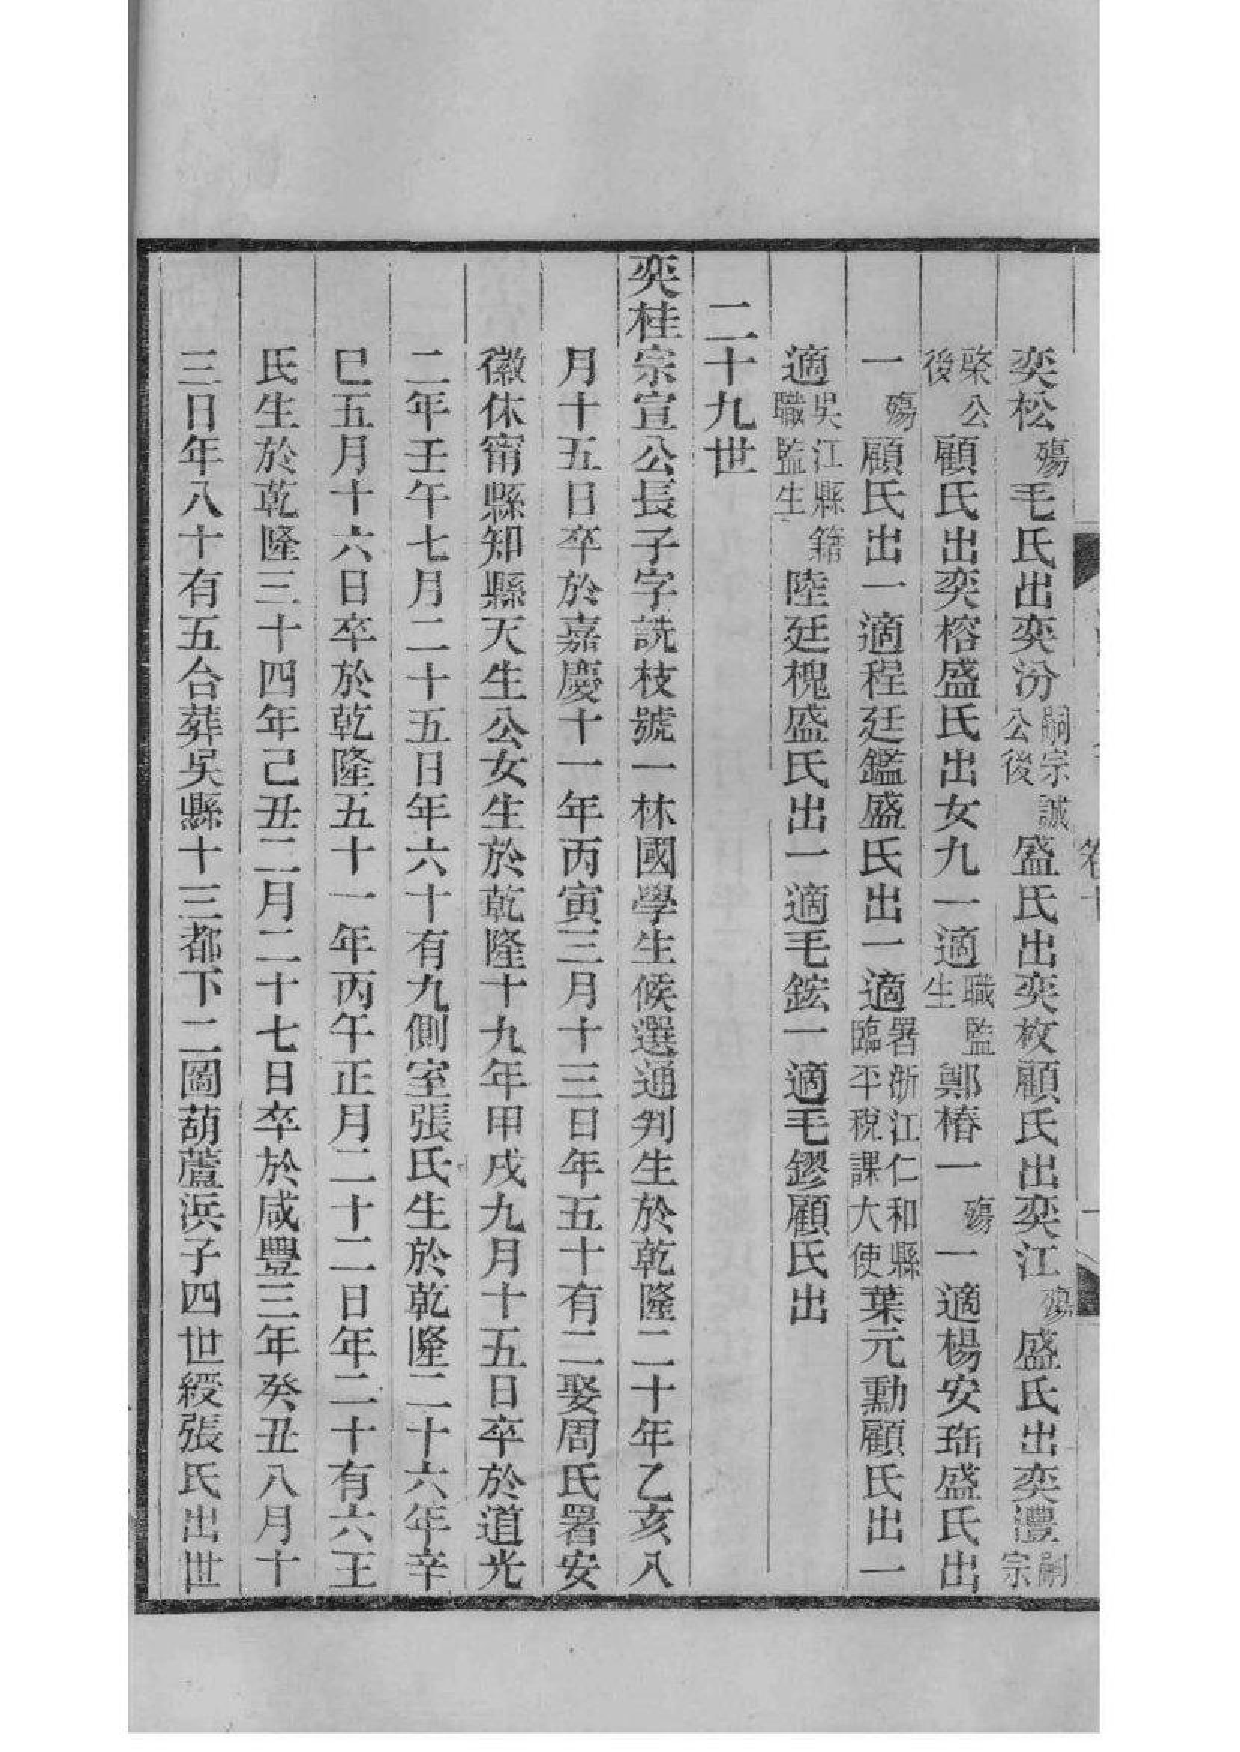 奕松殤毛氏出奕汾嗣宗誠公後盛氏出奕枚顧氏出奕江殤盛氏出奕澧嗣宗
棨公後顧氏出奕榕盛氏出女九一適職監生鄭椿一殤一適楊安珤盛氏出
一殤顧氏出一適程廷鑑盛氏出一適署浙江仁和縣臨平稅課大使葉元勳顧氏出一
適吳江縣籍職監生陸廷槐盛氏出一適毛鋐一適毛鏐顧氏出
二十九世
奕桂宗宣公長子字詵枝號一林國學生候選通判生於乾隆二十年乙亥八
月十五日卒於嘉慶十一年丙寅三月十三日年五十有二娶周氏署安
徽休甯縣知縣天生公女生於乾隆十九年甲戌九月十五日卒於道光
二年壬午七月二十五日年六十有九側室張氏生於乾隆二十六年辛
巳五月十六日卒於乾隆五十一年丙午正月二十二日年二十有六王
氏生於乾隆三十四年己丑二月二十七日卒於咸豐三年癸丑八月十
三日年八十有五合葬吳縣十三都下二圖葫蘆浜子四世綬張氏出世
卷十